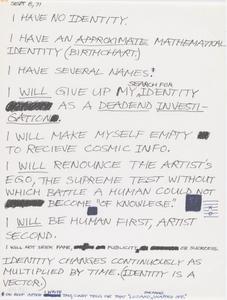 SEPT 8, 71
I HAVE NO IDENTITY.
I HAVE AN APPROXIMATE MATHEMATICAL
IDENTITY (BIRTHCHART.)
I HAVE SEVERAL NAMES.*
SEARCH FOR
I WILL GIVE UP MY IDENTITY
AS A DEADEND INVESTI-
GATION.
I WILL MAKE MYSELF EMPTY
TO RECIEVE COSMIC INFO.
I WILL RENOUNCE THE ARTIST'S
EGO, THE SUPREME TEST WITHOUT
WHICH BATTLE A HUMAN COULD NOT
BECOME "OF KNOWLEGE."
I WILL BE HUMAN FIRST, ARTIST
SECOND.
I WILL NOT SEEK FAME, PUBLICITY OR SUCCESS.
IDENTITY CHANGES CONTINUOUSLY AS
MULTIPLIED BY TIME. (IDENTITY IS A
VECTOR)